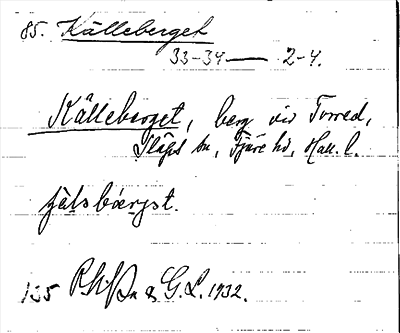 85. Källeberget
33-34 — 2-4.
Källeberget, berg vid Torred,
Släps sn, Fjäre hd, Hall. l.
jälsbærjət.
155 & G.L. 1932.